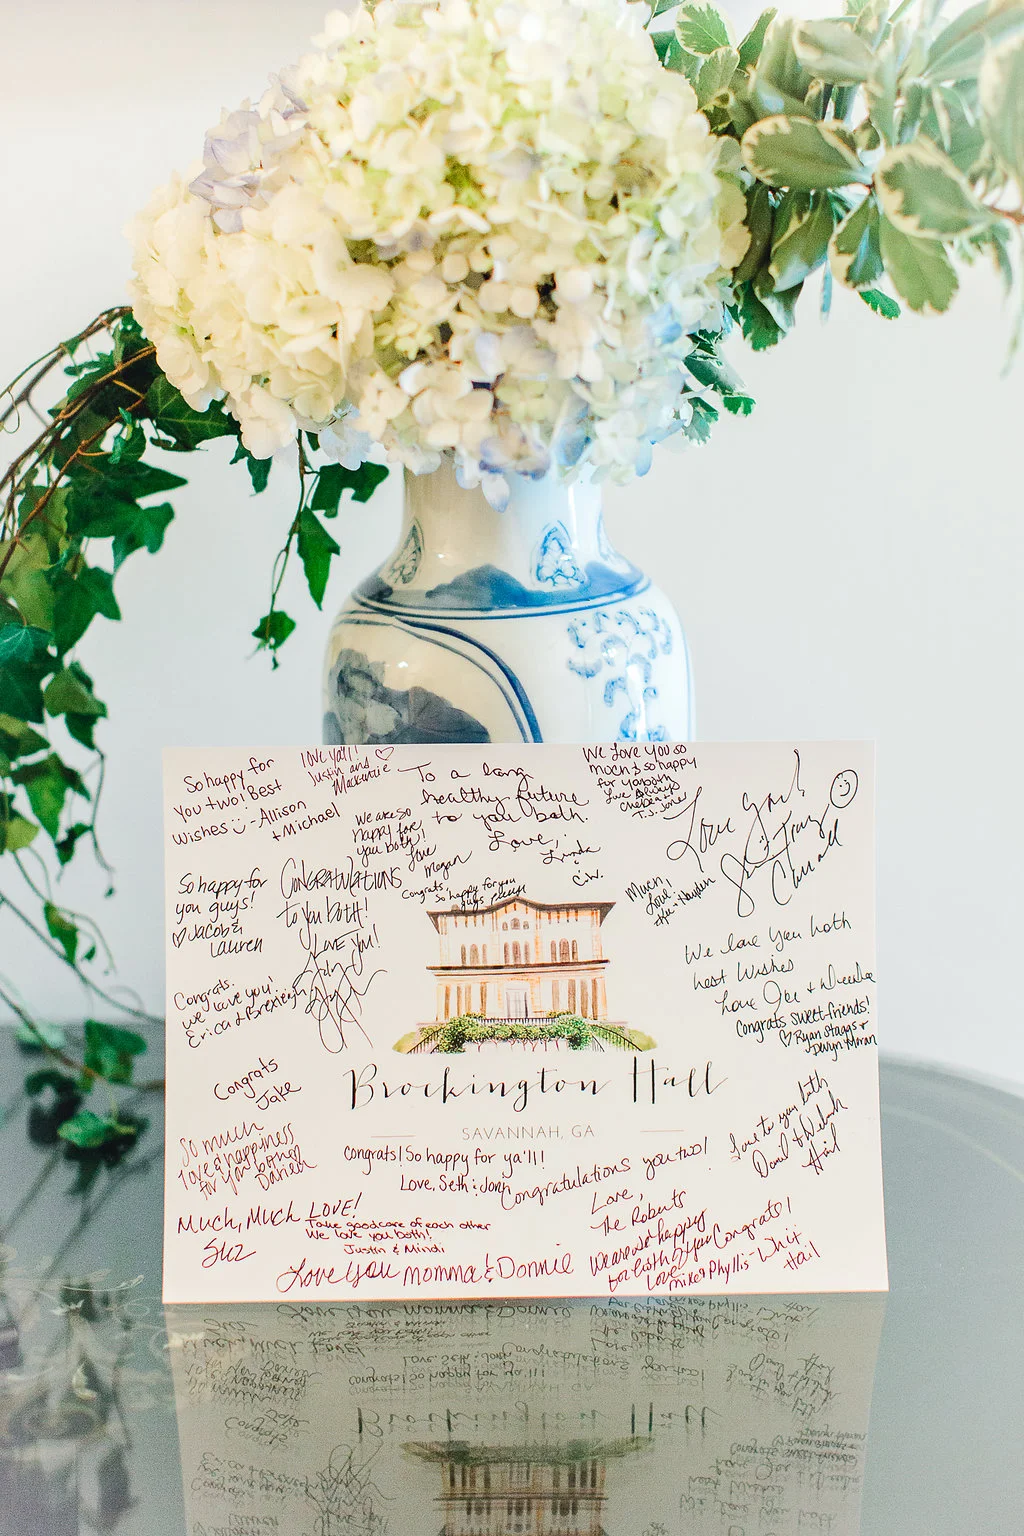 So happy for
you two! Best
Wishes - Allison
+ Michael
love ya'll!
Justin and
Mackenzie
To a long
healthy future
to you both.
Love,
Linda
&
C.W.
We Love You so
much & so happy
for ya both
Love Always
Chelsea +
T.J. Jone
Love You!
Tray
We are so
happy for
you both!
Love
Megan
Congrats,
So happy for you
guys
So happy for
you guys!
♡ Jacob &
Lauren
CONGRATULATIONS
to you both!
LOVE YOU!
Much
Love
Hayden
We love you both
best Wishes
Love Joe +
Congrats sweet friends!
♡ Ryan Staggs +
Devyn Moran
Congrats.
we love you!
Erica & Brexleigh
Congrats
Jake
Brockington Hall
SAVANNAH, GA
So much
love & happiness
for you both
Darien
Congrats! So happy for ya'll!
Love, Seth & Jonh
Congratulations you two!
Love,
The Roberts
Love to you both
David & Deborah
Hail
Much, Much LOVE!
Suz
Take good care of each other
We love you both!
Justin & Mindi
Love you momma & Donnie
We are so happy
for both of you
Love
Mike & Phyllis
Congrats!
- Whit
Hail